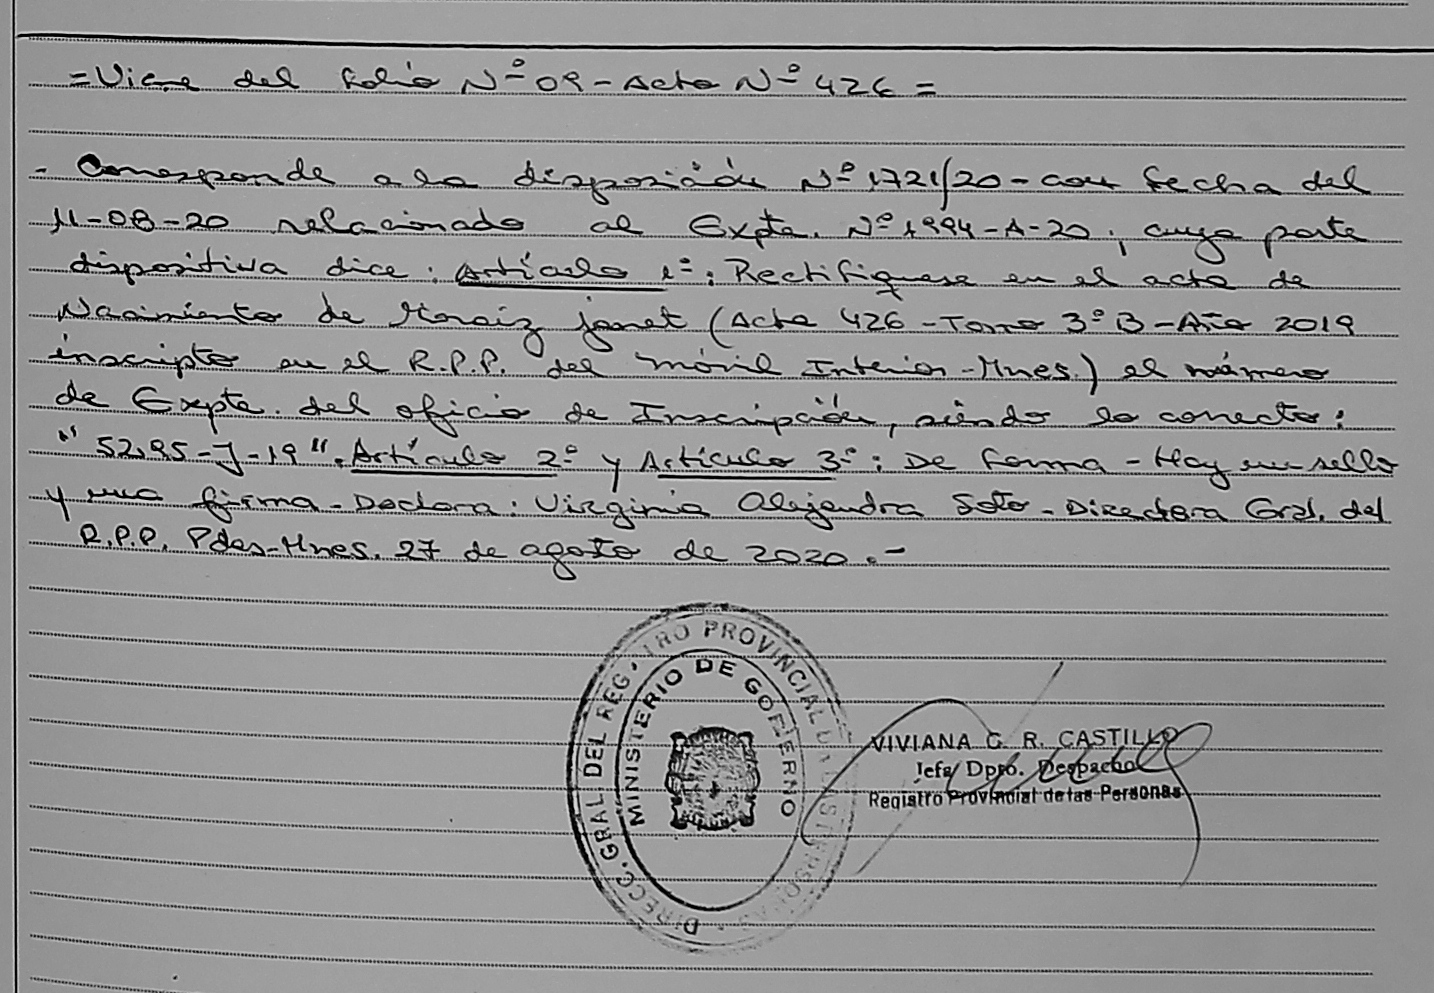 =Viene del folio Nº 09-Acta Nº 426=
- Corresponde a la disposición Nº 1721/20-con fecha del
11-08-20 relacionado al Expte. Nº 1994-A-20, cuya parte
dispositiva dice: Artículo 1º: Rectifíquese en el acta de
Nacimiento de janet (Acta 426-Tomo 3º B-Año 2019
inscripto en el R.P.P. del móvil Interior-Mnes.) el número
de Expte. del oficio de Inscripción, siendo lo correcto:
"5295-J-19". Artículo 2º y Artículo 3º: De forma-Hay un sello
y una firma-Doctora: Virginia Alejandra Soto-Directora Gral. del
R.P.P. Pdas-Mnes. 27 de agosto de 2020.-
DIRECC. GRAL. DEL REGISTRO PROVINCIAL DE LAS PERSONAS
MINISTERIO DE GOBIERNO
VIVIANA G. R. CASTILLO
Jefa Dpto. Despacho
Registro Provincial de las Personas